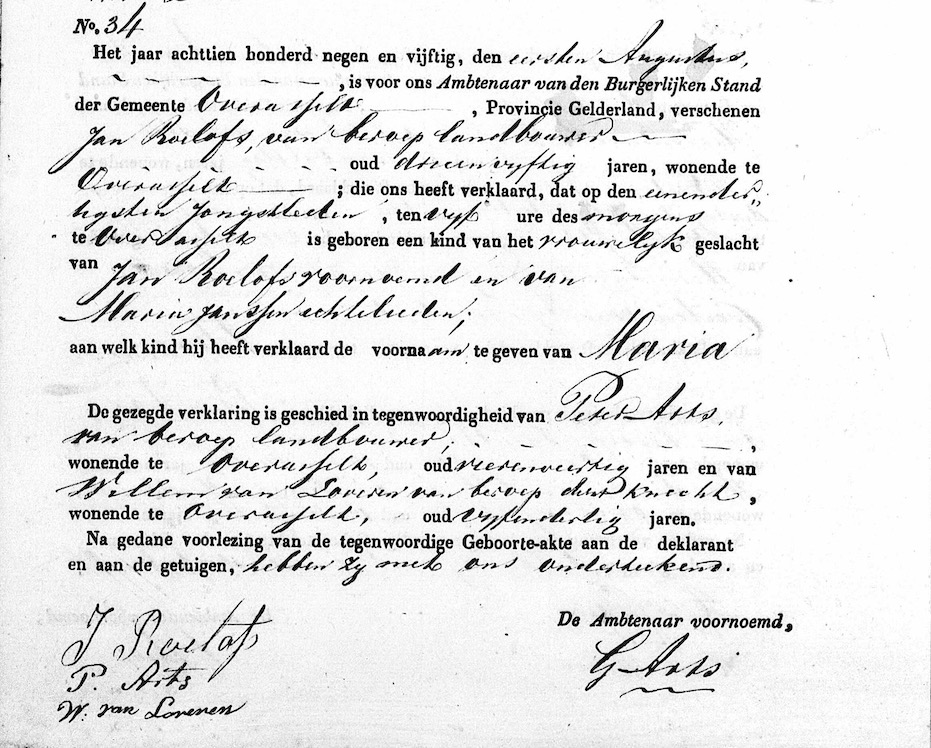 No. 34
Het jaar achttien honderd negen en vijftig, den eersten Augustus,
, is voor ons Ambtenaar van den Burgerlijken Stand
der Gemeente Overasselt , Provincie Gelderland, verschenen
Jan Roelofs, van beroep landbouwer
oud drieenvyftig jaren, wonende te
Overasselt ; die ons heeft verklaard, dat op den eenender-
tigsten jongstleden , ten vyf ure des morgens
te Overasselt is geboren een kind van het vrouwelyk geslacht
van Jan Roelofs voornoemd en van
Maria Janssen echtelieden;
aan welk kind hij heeft verklaard de voornaam te geven van Maria
De gezegde verklaring is geschied in tegenwoordigheid van Peter Arts,
van beroep landbouwer,
wonende te Overasselt, oud vierenveertig jaren en van
Willem van Loveren van beroep knecht,
wonende te Overasselt, oud vyfendertig jaren.
Na gedane voorlezing van de tegenwoordige Geboorte-akte aan de deklarant
en aan de getuigen, hebben zy met ons onderteekend.
De Ambtenaar voornoemd,
J Roelofs
G Arts
P. Arts
W. van Loveren